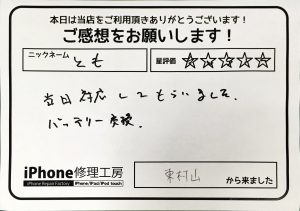 本日は当店をご利用頂きありがとうございます！
ご感想をお願いします！
ニックネーム
とも
星評価 ☆☆☆☆☆
当日対応してもらいました。
バッテリー交換。
iPhone修理工房
iPhone Repair Factory iPhone/iPad/iPod touch
東村山 から来ました